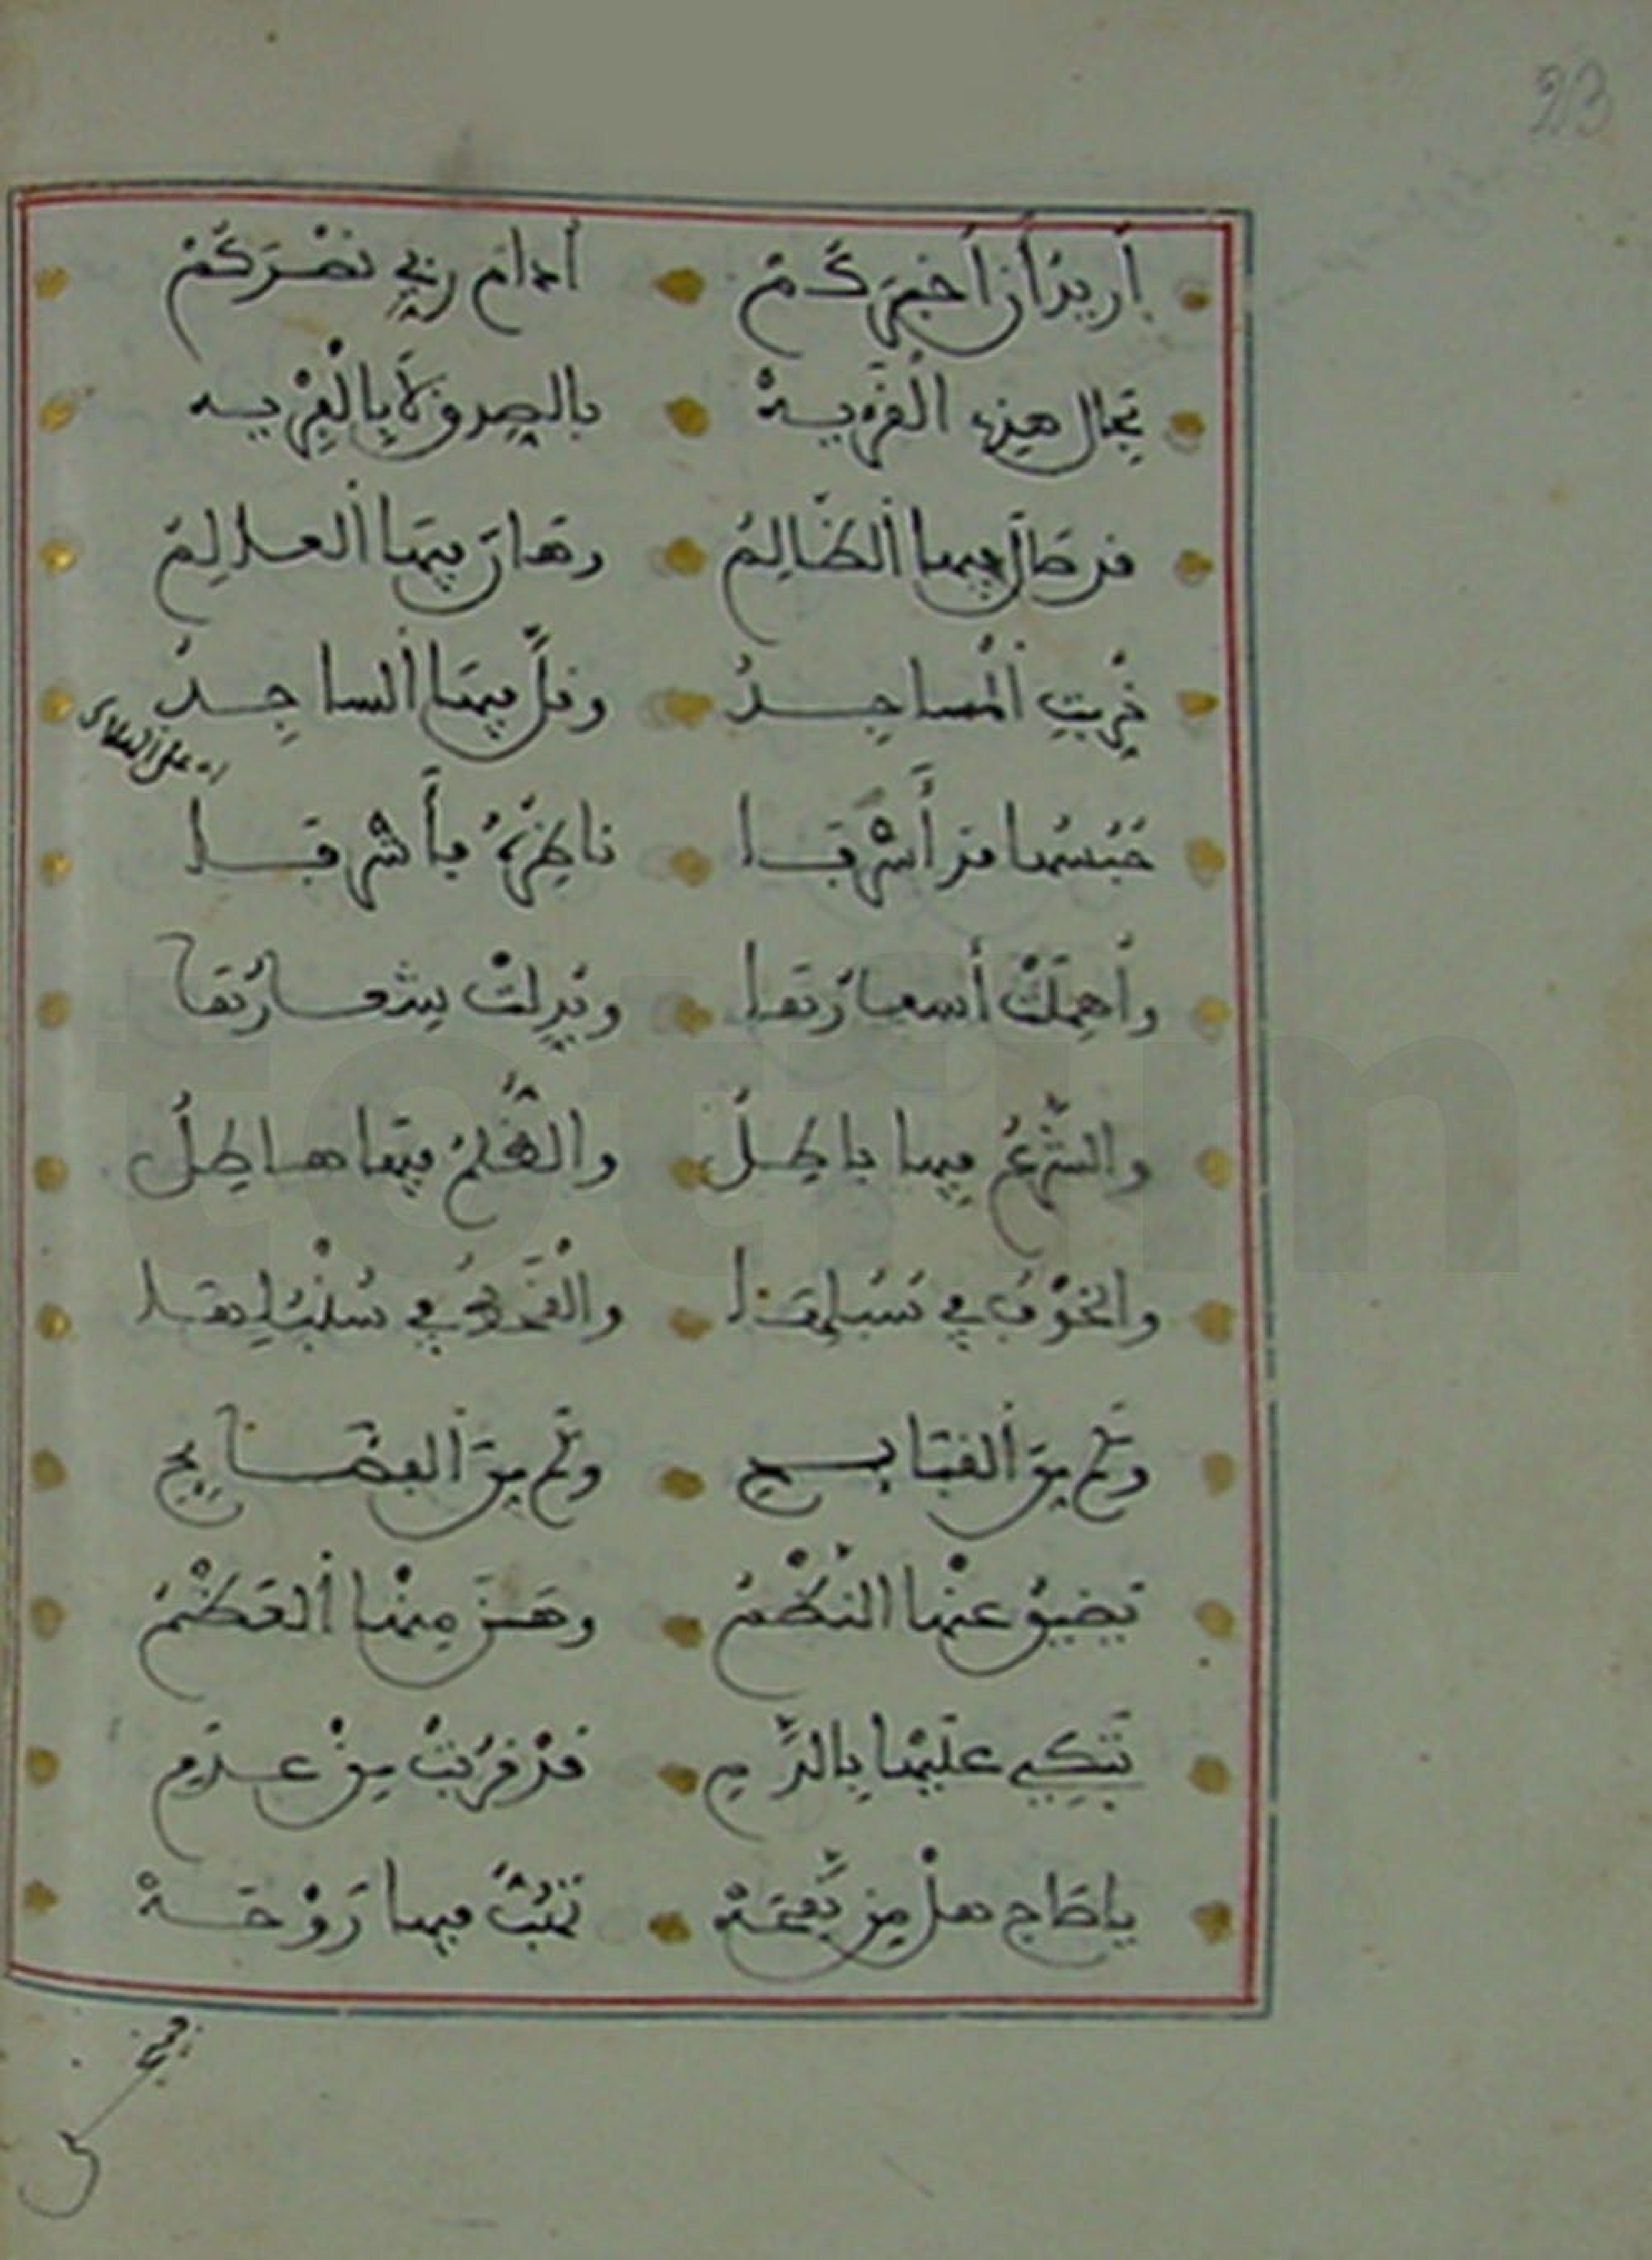 23
أريد أن أخبركم أدام ربي نصركم
بحال هذه القرية بالصدق لا بالفرية
قد طال فيها الظالم وهان فيها العالم
خربت المساجد وقل فيها الساجد
حبسها قد أشرفا ناظره فأشرفا
وأهملت أسعارها وبدلت شعارها
والشرع فيها باطل والظلم فيها هاطل
والخوف في سبلها والقمح في سنبلها
وكم من القبايح وكم من الفضايح
يضيق عنها النظم وهن منها العظم
تبكي عليها بالدم قد قربت من عدم
يا طاح هل من نفحة تهب فيها روحة